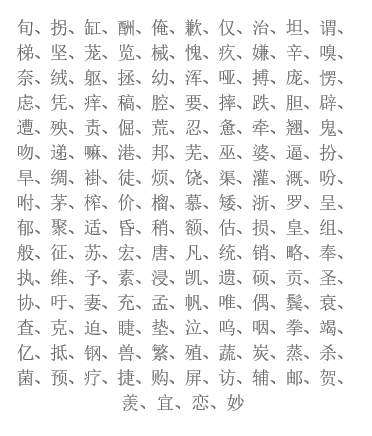 旬、拐、缸、酬、俺、歉、仅、治、坦、谓、
梯、坚、茏、览、械、愧、疚、嫌、辛、嗅、
奈、绒、躯、拯、幼、浑、哑、搏、庞、愣、
虑、凭、痒、稿、腔、要、摔、跌、胆、辟、
遭、殃、责、倔、荒、忍、惫、牵、翘、鬼、
吻、递、嘛、港、邦、芜、巫、婆、逼、扮、
旱、绸、褂、徒、烦、饶、渠、灌、溉、吩、
咐、茅、榨、价、榴、慕、矮、浙、罗、呈、
郁、聚、适、昏、稍、额、估、损、皇、组、
般、征、苏、宏、唐、凡、统、销、略、奉、
执、维、予、素、浸、凯、遗、硕、贡、圣、
协、吁、妻、充、孟、帆、唯、偶、鬓、衰、
查、克、迫、睫、垫、泣、呜、咽、拳、竭、
亿、抵、钢、兽、繁、殖、蔬、炭、蒸、杀、
菌、预、疗、捷、购、屏、访、辅、邮、贺、
羡、宜、恋、妙